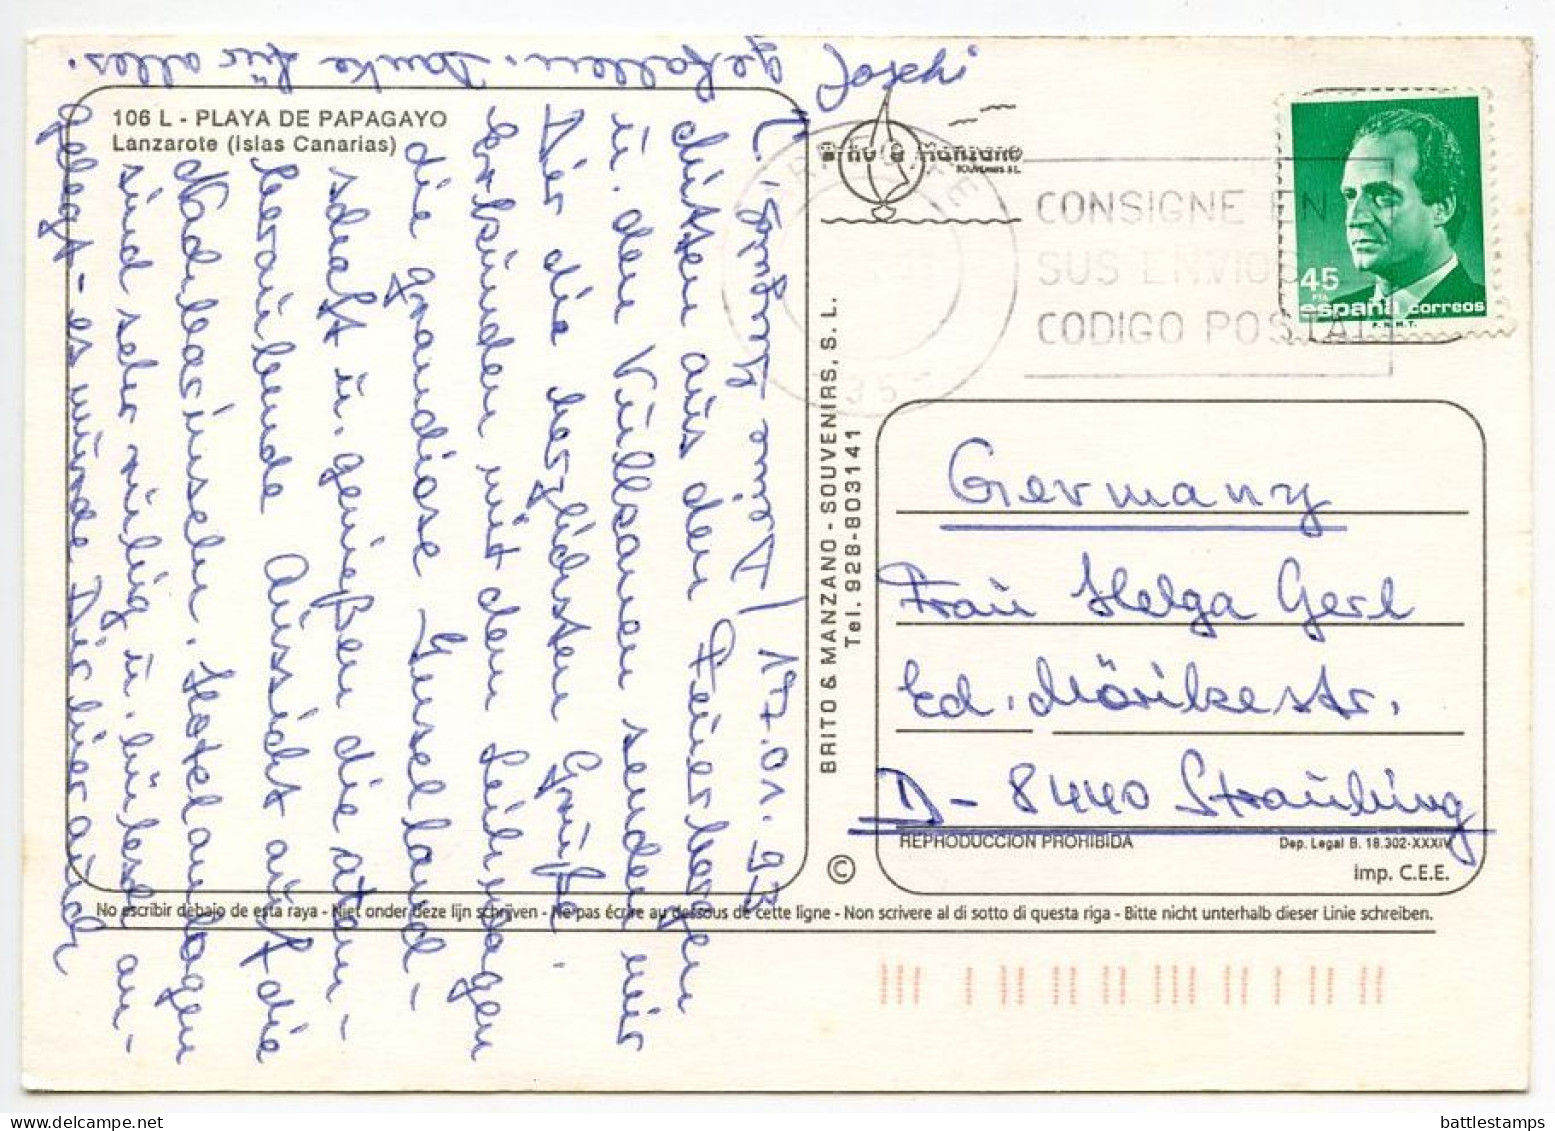 106 L - PLAYA DE PAPAGAYO
Lanzarote (Islas Canarias)
17.01.93
chitten aus den Feuerbergen
ü. den Vüllcanen senden wir
Dir die herzlichsten Grüße.
erkünden mit dem Leihwagen
die grandiose Inselland-
schaft ü. genießen die atem-
beraübende Aüssicht aüf die
Nachbarinseln. Hotelanlagen
sind sehr rühig ü. an-
gelegt - es würde Dir hier aüch
gefallen. Danke für alles.
Joschi
BRITO & MANZANO - SOUVENIRS, S. L.
Tel. 928-803141
©
brito & manzano
SOUVENIRS S L.
CONSIGNE EN
SUS ENVIOS
CODIGO POSTAL
35
45
PTA
españa correos
F.N.M.T.
Germany
Fraü Helga Gerl
Ed. Mörikestr.
D - 8440 Straübing
REPRODUCCION PROHIBIDA
Dep. Legal B. 18.302-XXXIV
Imp. C.E.E.
No escribir debajo de esta raya - Niet onder deze lijn schrijven - Ne pas écrire au dessous de cette ligne - Non scrivere al di sotto di questa riga - Bitte nicht unterhalb dieser Linie schreiben.
battlestamps